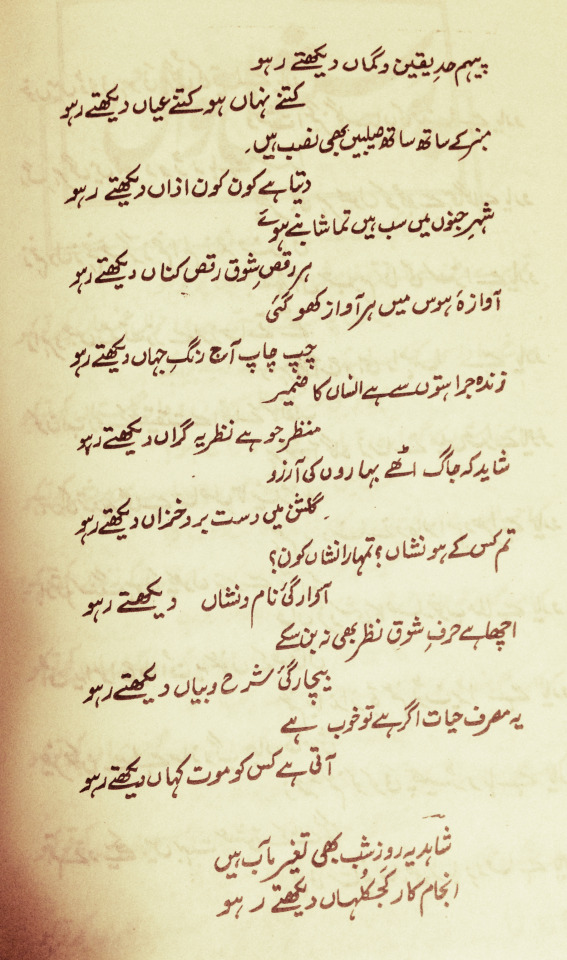 پیہم حدِ یقین و گماں دیکھتے رہو
کتنے نہاں ہو کتنے عیاں دیکھتے رہو
منبر کے ساتھ ساتھ صلیبیں بھی نصب ہیں
دیتا ہے کون کون اذاں دیکھتے رہو
شہرِ جنوں میں سب ہیں تماشا بنے ہوئے
ہر رقصِ شوق رقص کناں دیکھتے رہو
آوازۂ ہوس میں ہر آواز کھو گئی
چپ چاپ آج رنگِ جہاں دیکھتے رہو
زندہ جراحتوں سے ہے انساں کا ضمیر
منظر جو ہے نظر پہ گراں دیکھتے رہو
شاید کہ جاگ اٹھے بہاروں کی آرزو
گلشن میں دست بردِ خزاں دیکھتے رہو
تم کس کے ہو نشاں؟ تمہارا نشاں کون؟
آوارگیٔ نام و نشاں دیکھتے رہو
اچھا ہے حرفِ شوق نظر بھی نہ بن سکے
بیچارگیٔ شرح و بیاں دیکھتے رہو
یہ مصرف حیات اگر ہے تو خوب ہے
آتی ہے کس کو موت کہاں دیکھتے رہو
شاہد یہ روز شب بھی تغیر مآب ہیں
انجام کار کجکلہاں دیکھتے رہو